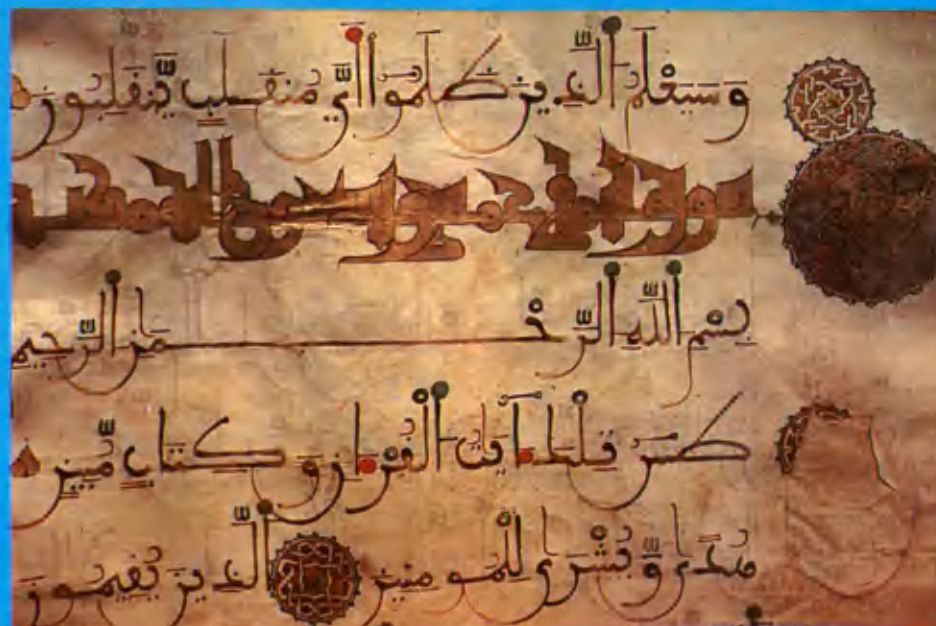 وَسَيَعْلَمُ الَّذِينَ ظَلَمُوا أَيَّ مُنقَلَبٍ يَّنقَلِبُونَ
سورة
بِسْمِ اللَّهِ الرَّحْمَٰنِ الرَّحِيمِ
طسٓ تِلْكَ آيَاتُ الْقُرْآنِ وَكِتَابٍ مُّبِينٍ
هُدًى وَّبُشْرَىٰ لِلْمُومِنِينَ الَّذِينَ يُقِيمُونَ